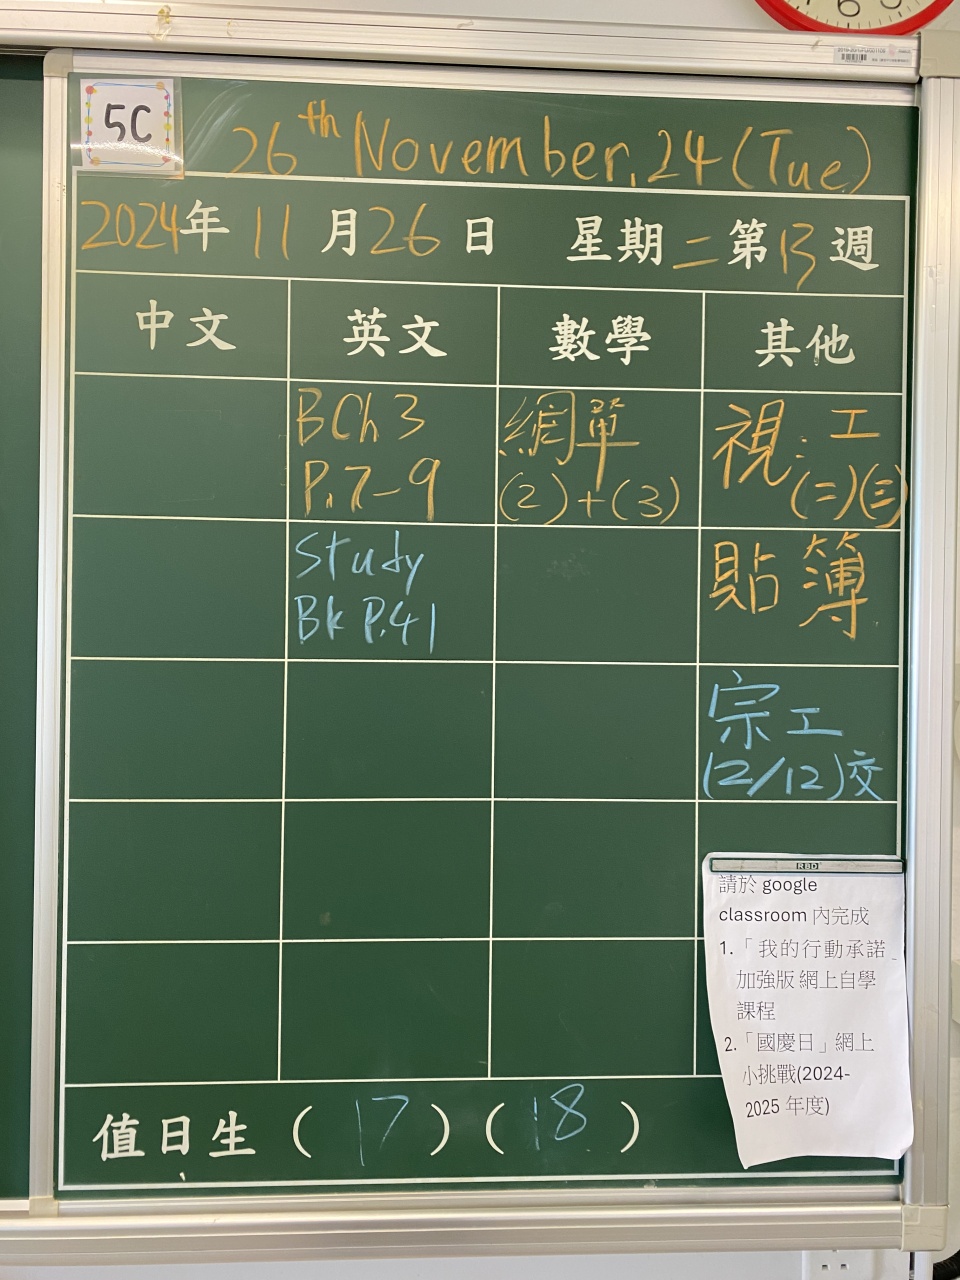 5C
26th November, 24 (Tue)
2024年 11月26日 星期二第13週
中文 英文 數學 其他
BCh 3
P. 7-9
網單
(2)+(3)
視: 工
(二)(三)
Study
Bk P.41
貼簿
宗工
(2/12)交
RBD
請於 google
classroom 內完成
1.「我的行動承諾_
加強版 網上自學
課程
2.「國慶日」網上
小挑戰(2024-
2025 年度)
值日生 ( 17 ) ( 18 )